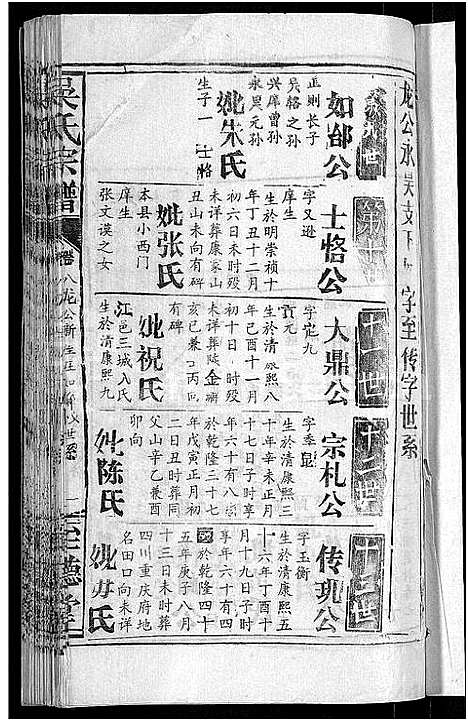 龙公永吴支下
字至传字世系
世
如郃公
正则长子
吴辂之孙
兴库曾孙
永畏元孙
妣朱氏
生子一士恪
士恪公
字又逊
庠生
生於明崇祯十
年丁丑十二月
初六日未时殁
未详葬康家山
丑山未向有碑
妣张氏
本县小西门
庠生
张文谟之女
十一世
大鼎公
字九
贡元
生於清康熙八
年己酉十一月
初十日时殁
未详葬金
亥巳兼丙
有碑
妣祝氏
江邑三城入氏
生於清康熙九
十二世
宗札公
字季
生於清康熙三
十年辛未正月
十七日子时享
年六十有八
於乾隆二十七
年戊寅正月初
二日丑时葬同
父山辛乙兼酉
卯向
妣陈氏
十三世
传玑公
字玉衡
生於清康熙五
十六年丁酉十
月十九日子时
享年六十有四
於乾隆四十
五年庚子八月
十三日未时葬
四川重庆府地
名田口向未详
妣毋氏
吴氏宗谱
卷八龙公
一
至德堂